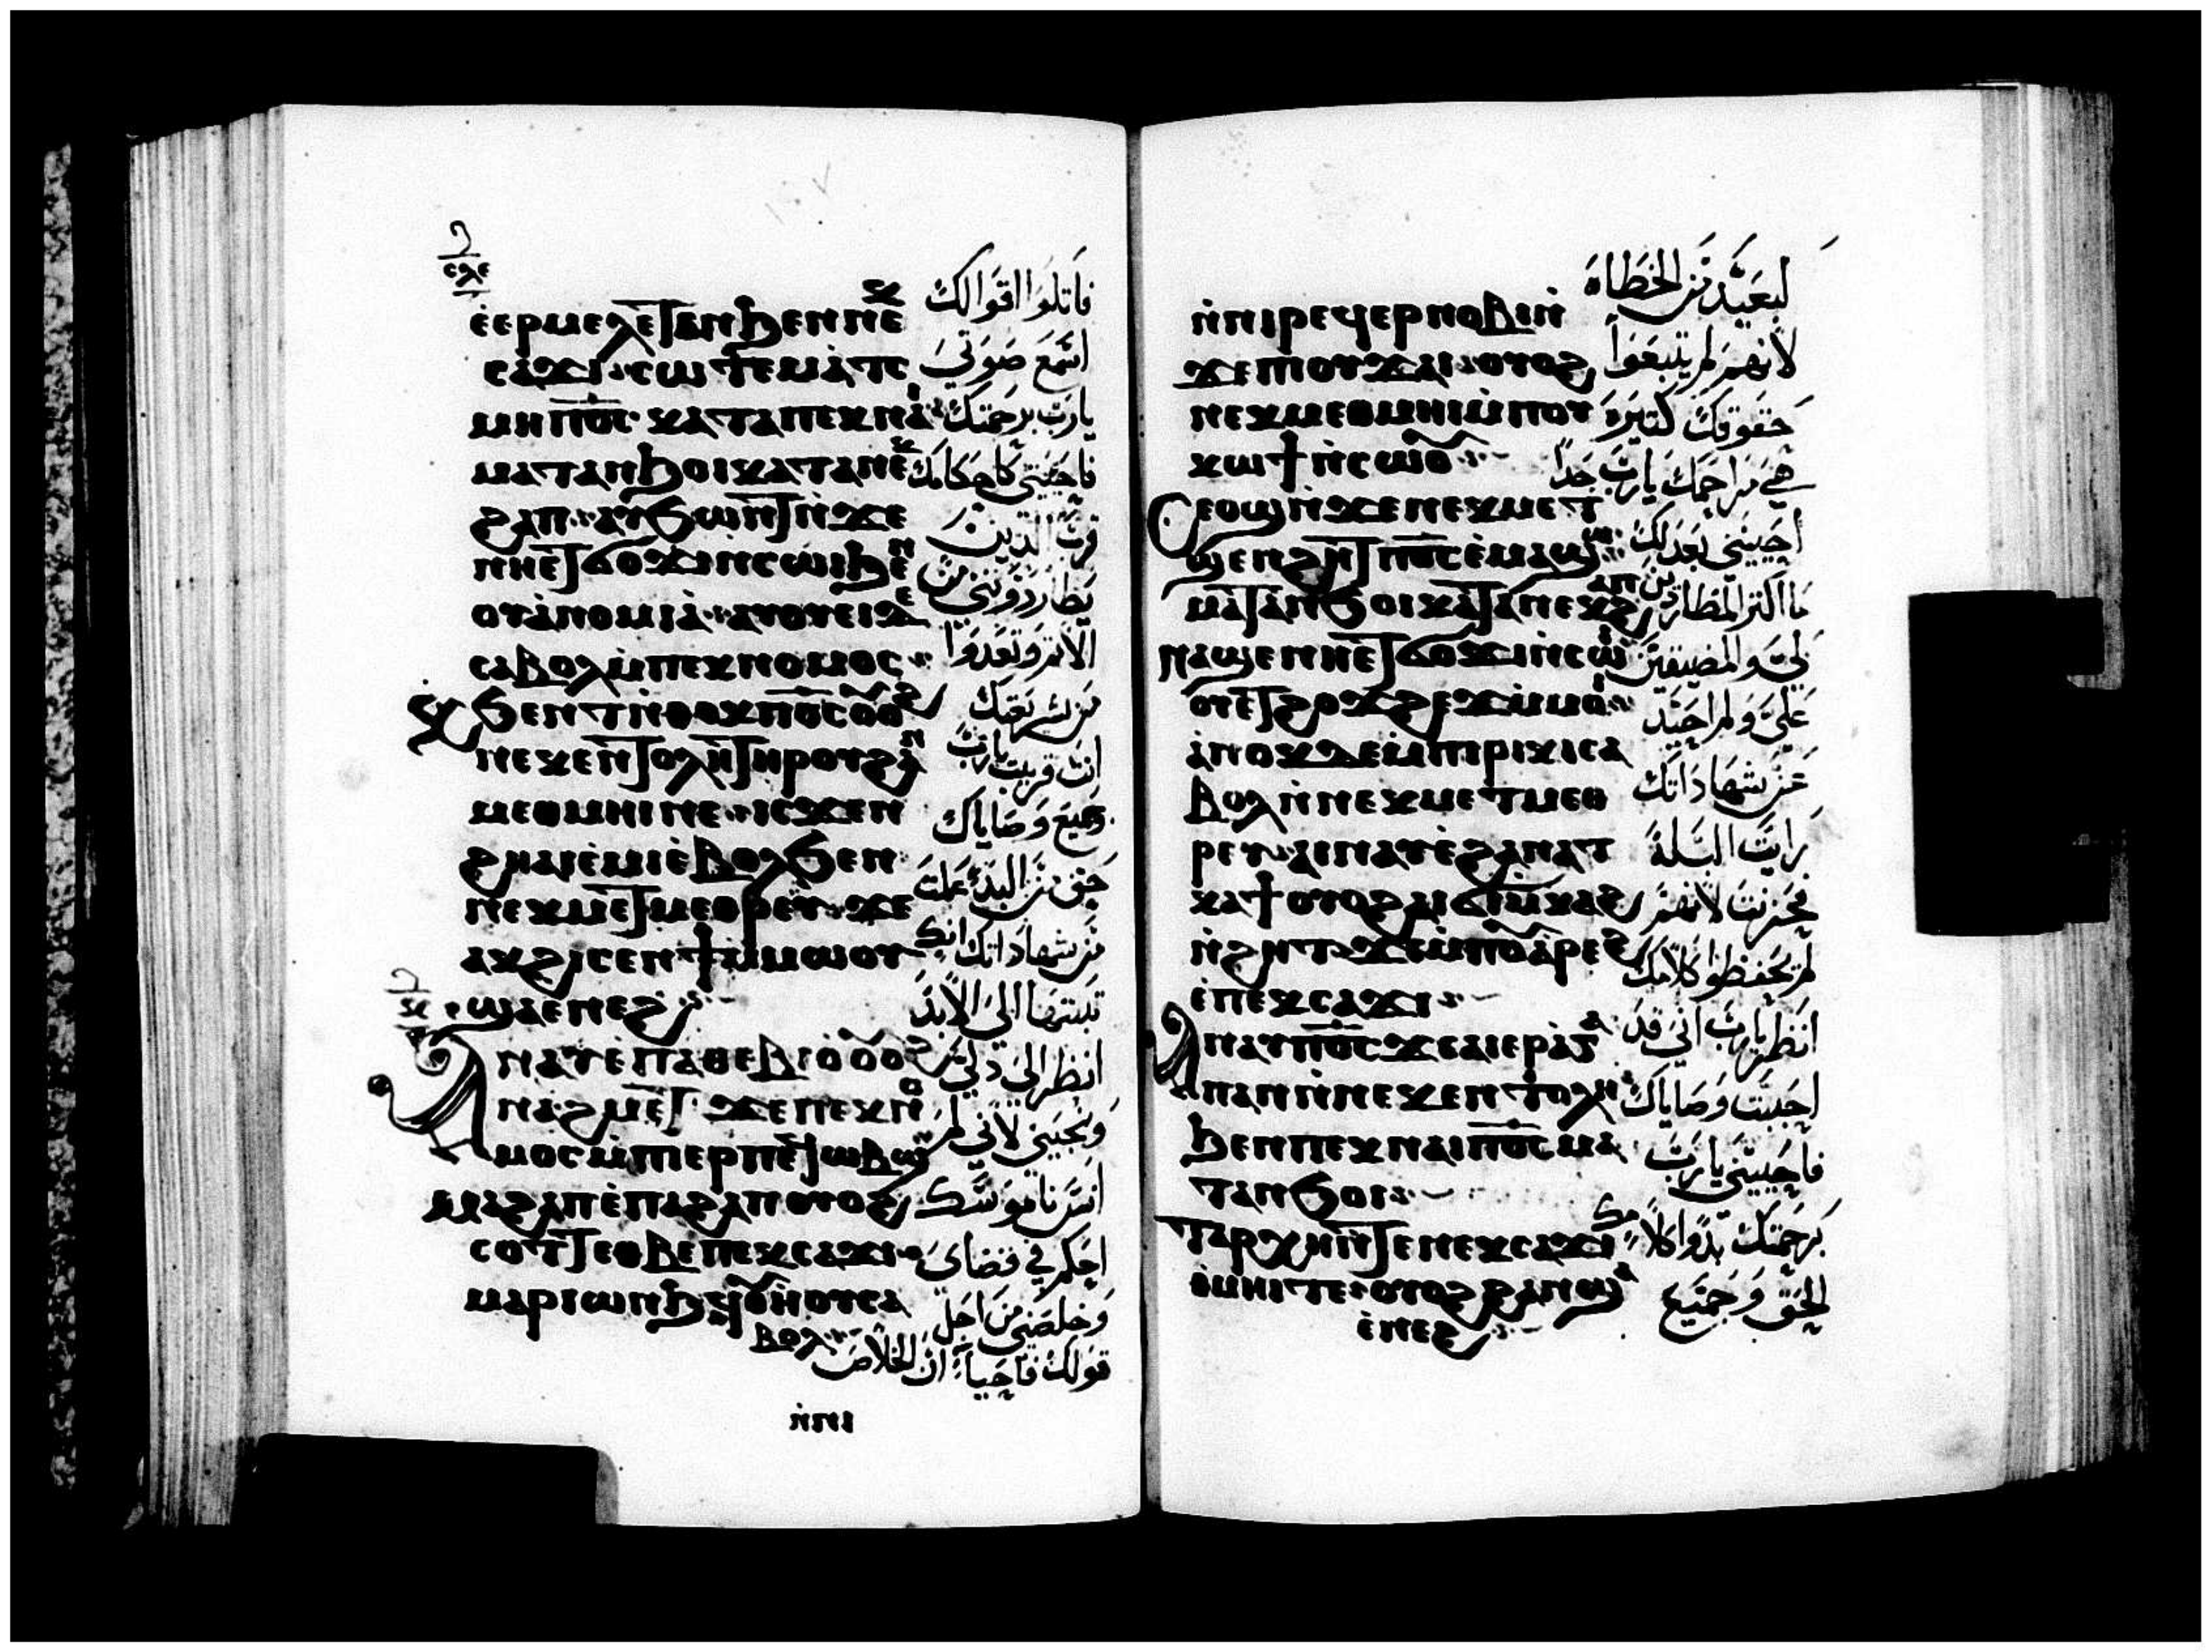 ⲥⲗⲉ
ⲉ̀ⲉⲣⲙⲉⲗⲉⲧⲁⲛϧⲉⲛⲛⲉⲕ
ⲥⲁϫⲓ· ⲥⲱⲧⲉⲙⲁ̀ⲧⲥ
ⲙⲏⲡⲟ̅ⲥ̅· ⲕⲁⲧⲁⲡⲉⲕⲛⲁⲓ
ⲙⲁⲧⲁⲛϧⲟⲓⲕⲁⲧⲁⲛⲉⲕ
ϩⲁⲡ· ⲁⲩϧⲱⲛⲧⲛ̀ϫⲉ
ⲛⲏⲉⲧϭⲟϫⲓⲛⲥⲱⲓϧⲉⲛ
ⲟⲩⲁ̀ⲛⲟⲙⲓⲁ̀· ⲁⲩⲟⲩⲉⲓⲇⲉ
ⲥⲁⲃⲟⲗⲙ̀ⲡⲉⲕⲛⲟⲙⲟⲥ·
ⲕϧⲉⲛⲧⲛ̀ⲑⲟⲕⲡⲟ̅ⲥ̅ⲟⲩⲟϩ
ⲛⲉⲕⲉⲛⲧⲟⲗⲏⲧⲏⲣⲟⲩϩⲁⲛ
ⲙⲉⲑⲙⲏⲓⲛⲉ· ⲓⲥϫⲉⲛ
ϩⲏⲁⲓⲉ̀ⲙⲓⲉ̀ⲃⲟⲗϧⲉⲛ
ⲛⲉⲕⲙⲉⲧⲙⲉⲑⲣⲉⲩ· ϫⲉ
ⲁⲕϩⲓⲥⲉⲛϯⲙ̀ⲙⲱⲟⲩ
ϣⲁⲉⲛⲉϩ·
ⲁⲛⲁⲩⲉ̀ⲡⲁⲑⲉⲃⲓⲟⲟⲩⲟϩ
ⲛⲁϩⲙⲉⲧ ϫⲉⲡⲉⲕⲛⲟ
ⲙⲟⲥⲙ̀ⲡⲓⲉⲣⲡⲉϥⲱⲃϣ
ⲙⲁϩⲁⲡⲉ̀ⲡⲁϩⲁⲡⲟⲩⲟϩ
ⲥⲟⲧⲧⲉⲑⲃⲉⲡⲉⲕⲥⲁϫⲓ·
ⲙⲁⲣⲓⲱⲛϧϥⲟⲩⲏⲟⲩⲥⲁ
ⲃⲟⲗ·
ⲛ̀ⲛⲓ
فاتلوا اقوالك
اسمع صوتي
يارب برحمتك
فاحييني كاحكامك
قرب الذين
يطاردونني من
الاثم وتعدوا
من شريعتك
انت قريب يارب
وجميع وصاياك
حق من البدئ علمت
من شهاداتك انك
ثبتتها الي الابد
انظر الي ذلي
ونجيني لاني لم
انس ناموسك
احكم في قضاي
وخلصني من اجل
قولك فاحيا ان الخلاص
ⲛ̀ⲛⲓⲣⲉϥⲉⲣⲛⲟⲃⲓⲛ̀
ϫⲉⲡⲓⲟⲩϫⲁⲓ· ⲟⲩⲟϩ
ⲛⲉⲕⲙⲉⲑⲙⲏⲓⲙ̀ⲡⲟⲩ
ⲕⲱϯⲛ̀ⲥⲱⲟⲩ·
Ⲥⲉⲟϣⲛ̀ϫⲉⲛⲉⲕⲙⲉⲧ
ϣⲉⲛϩⲏⲧⲡⲟ̅ⲥ̅ⲉ̀ⲙⲁϣⲱ
ⲙⲁⲧⲁⲛϧⲟⲓⲕⲁⲧⲁⲡⲉⲕϩⲁⲡ
ⲛⲁϣⲉⲛⲏⲉⲧϭⲟϫⲓⲛ̀ⲥⲱⲓ
ⲟⲩⲉⲧϩⲟϫϩⲉϫⲙ̀ⲙⲟⲓ·
ⲁ̀ⲛⲟⲕⲇⲉⲙ̀ⲡⲓⲣⲓⲕⲓⲥⲁ
ⲃⲟⲗⲛ̀ⲛⲉⲕⲙⲉⲧⲙⲉⲑ
ⲣⲉⲩ· ⲁⲓⲛⲁⲩⲉ̀ϩⲁⲛⲁⲧ
ⲕⲁϯⲟⲩⲟϩⲁⲓϭⲓⲙ̀ⲕⲁϩ
ⲛ̀ϩⲏⲧ· ϫⲉⲙ̀ⲡⲟⲩⲁ̀ⲣⲉϩ
ⲉ̀ⲛⲉⲕⲥⲁϫⲓ·
Ⲁⲛⲁⲩⲡⲟ̅ⲥ̅ϫⲉⲁⲓⲉⲣⲁ̀ⲅⲁ
ⲡⲁⲛⲛ̀ⲛⲉⲕⲉⲛⲧⲟⲗⲏ
ϧⲉⲛⲡⲉⲕⲛⲁⲓⲡⲟ̅ⲥ̅ⲙⲁ
ⲧⲁⲛϧⲟⲓ·
ⲧⲁⲣⲭⲏⲛ̀ⲧⲉⲛⲉⲕⲥⲁϫⲓ
ⲑⲙⲏⲓⲧⲉ· ⲟⲩⲟϩϩⲁⲛϣⲁ
ⲉ̀ⲛⲉϩ·
لبعيد من الخطاه
لانهم لم يتبعوا
حقوقك كثيره
هي مراحمك يارب جدا
احييني بعدلك
ما اكثر المطاردين
لي والمضيقين
علي ولم احيد
عن شهاداتك
رايت البلة
فحزنت لانهم
لم يحفظوا كلامك
انظر يارب اني قد
احببت وصاياك
فاحييني يارب
برحمتك بدو كلامك
الحق وجميع